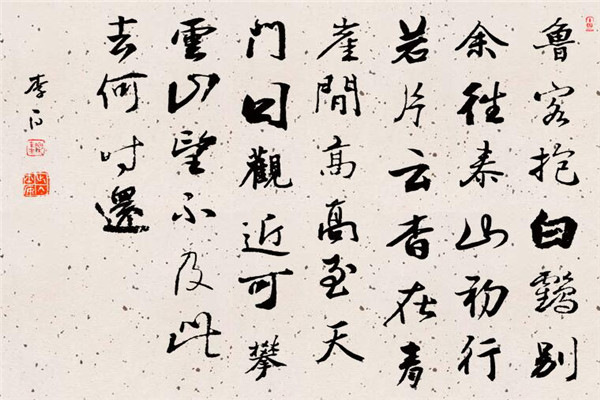 魯客抱白鶴别
余往泰山初行
若片云杳在青
崖間高高至天
門日觀近可攀
雲山望不及此
去何时還
李